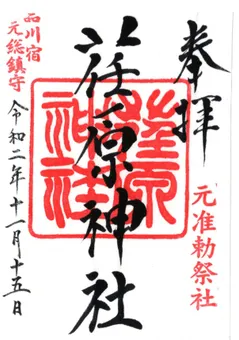 奉拝
元准勅祭社
荏原神社
品川宿
元総鎮守
令和二年十一月十五日
荏原
神社